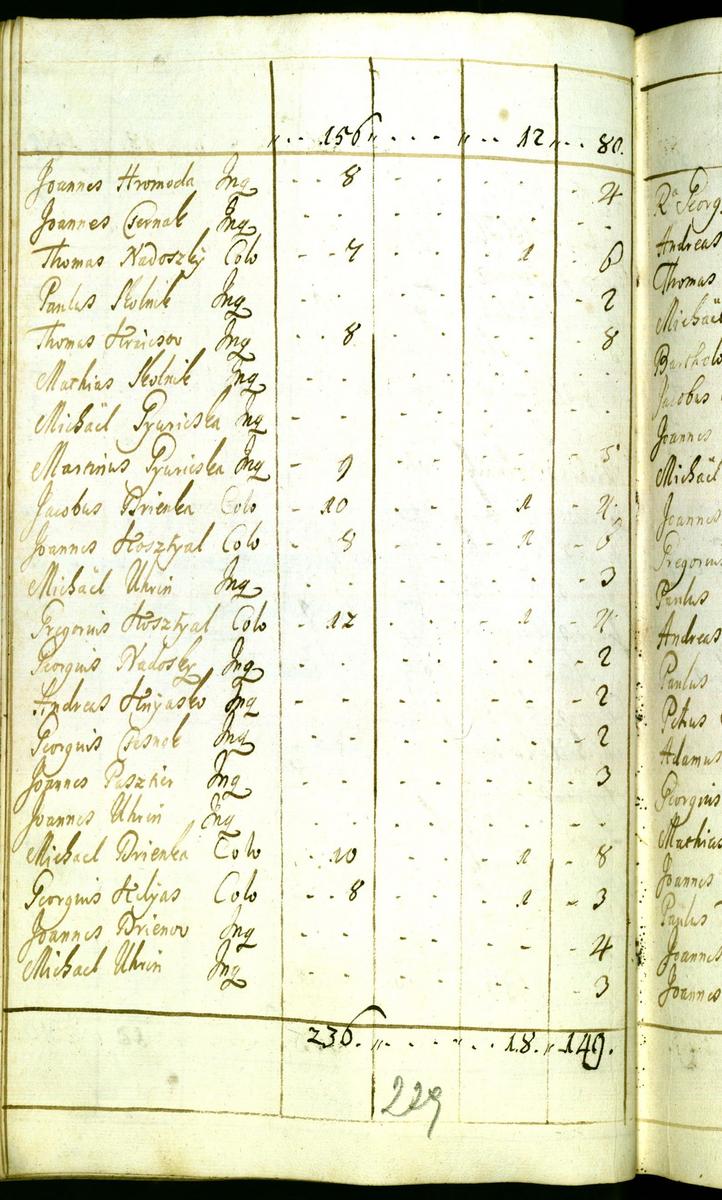 156 12 80.
Joannes Hromoda Inq 8 4
Joannes Csernak Inq
Thomas Nadoszky Colo 7 1 6
Paulus Skolnik Inq 2
Thomas Inq 8 8
Mathias Skolnik Inq
Michaël Pyuricska Inq
Martinus Pyuricska Inq 9 5
Jacobus Brienka Colo 10 1 4
Joannes Hosztyal Colo 8 1
Michaël Uhrin Inq 3
Gregorius Hosztyal Colo 12 1 4
Georgius Nadosky Inq 2
Andreas Hnyasko Inq 2
Georgius Csesnek Inq 2
Joannes Pasztier Inq 3
Joannes Uhrin Inq
Michael Brienka Colo 10 1 8
Georgius Helyas Colo 8 1 3
Joannes Brienov Inq 4
Michael Uhrin Inq 3
236. 18. 149.
229
Georg
Andreas
Thomas
Michaël
Bartholo
Jacobus
Joannes
Michaël
Joannes
Gregorius
Paulus
Andreas
Paulus
Petrus
Adamus
Georgius
Mathias
Joannes
Paulus
Joannes
Joannes